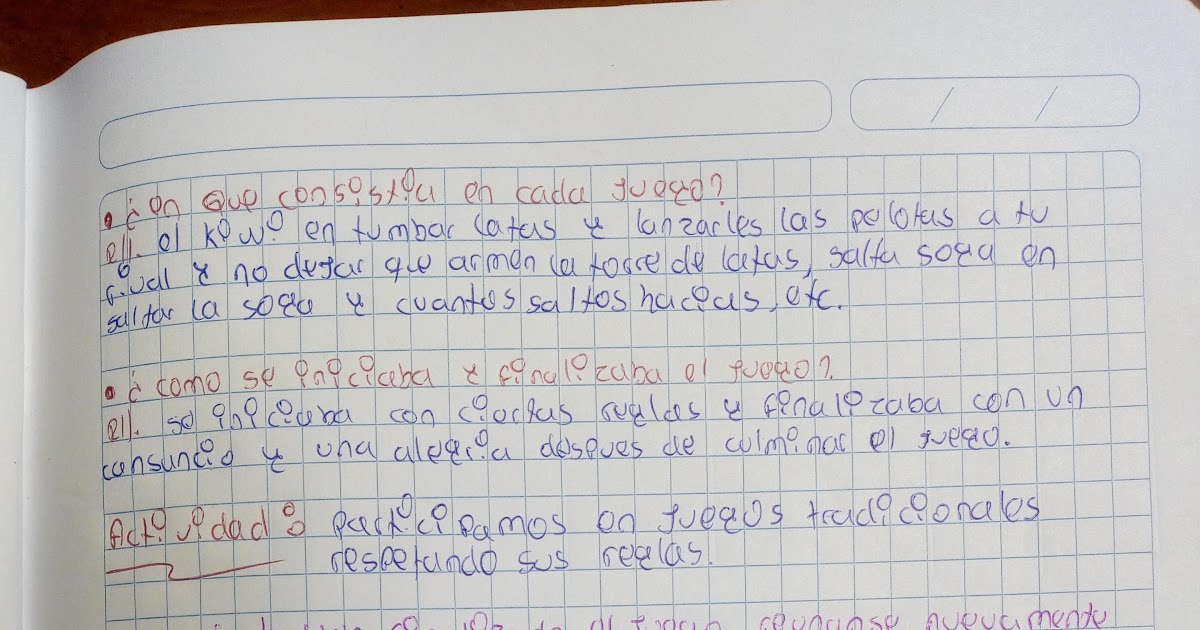 • ¿en que consistia en cada juego?
R//. el kiwi en tumbar latas y lanzarles las pelotas a tu
rival y no dejar que armen la torre de latas, salta soga en
saltar la soga y cuantos saltos hacias, etc.
• ¿como se iniciaba y finalizaba el juego?
R//. se iniciaba con ciertas reglas y finalizaba con un
cansuncio y una alegria despues de culminar el juego.
Actividad: Participamos en juegos tradicionales
respetando sus reglas.
nuevamente